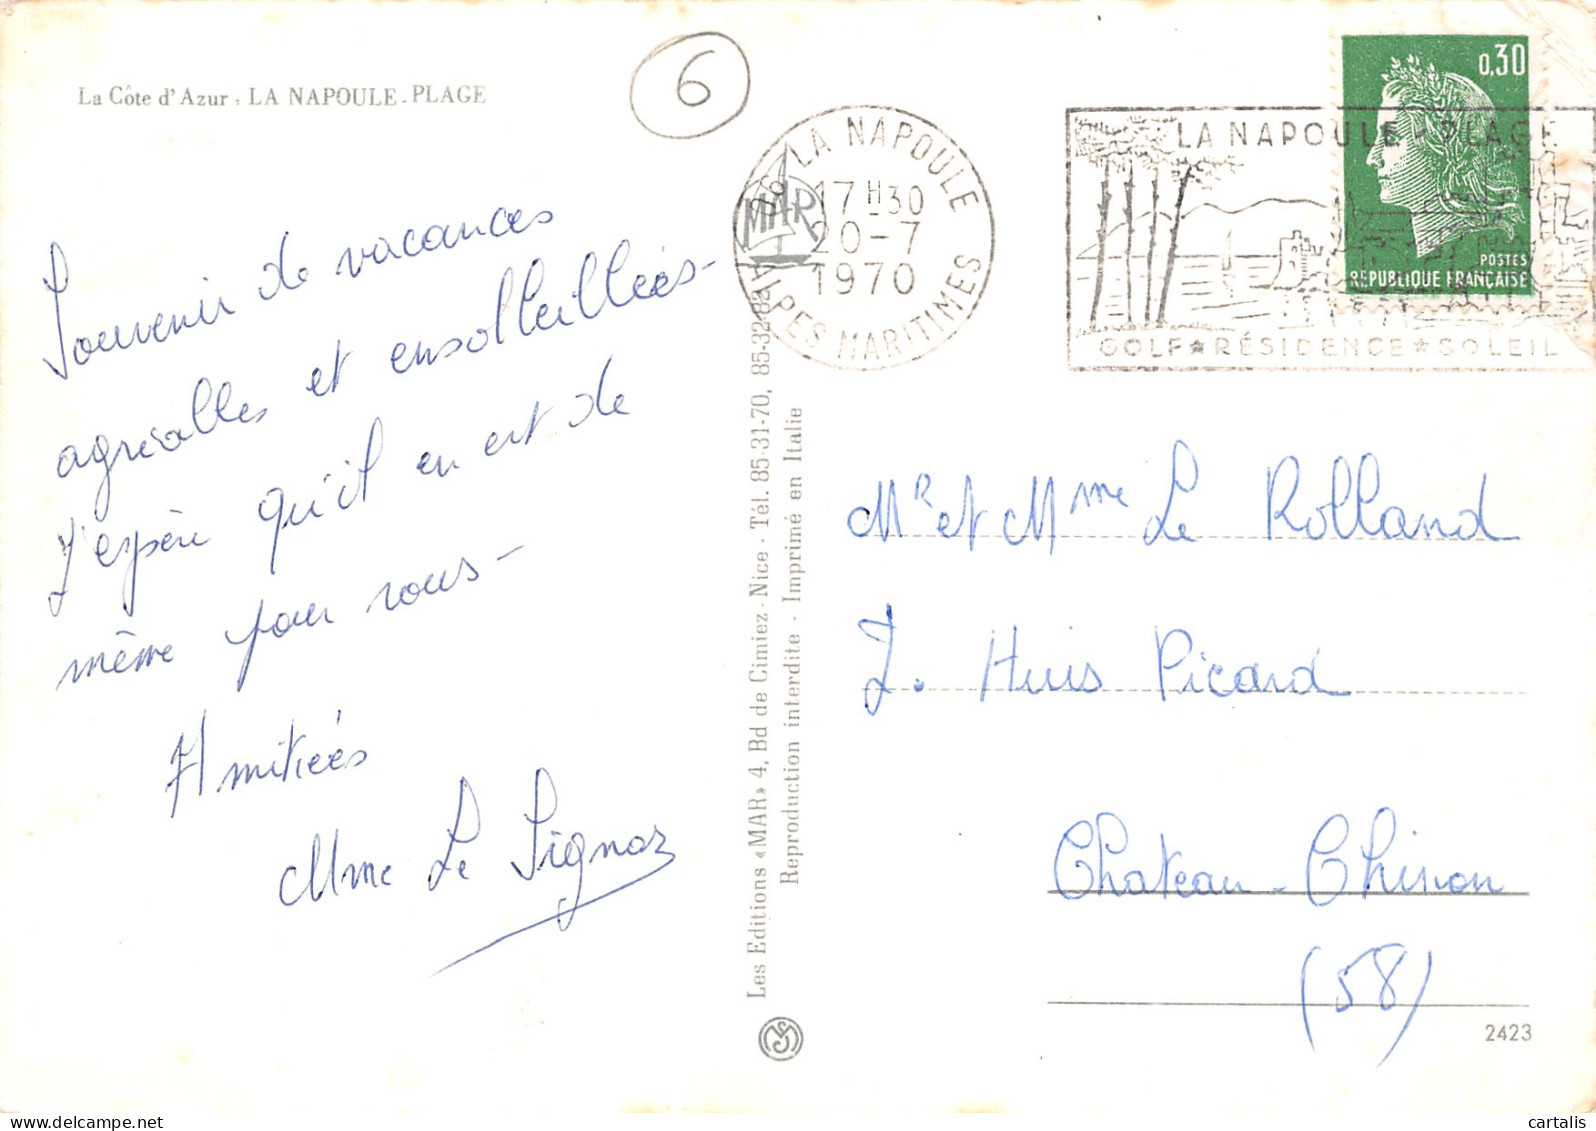 La Côte d'Azur : LA NAPOULE-PLAGE
6
Souvenir de vacances
agréables et ensolleillées-
J'espère qu'il en est de
même pour vous-
Amitiés
Mme Le Signoz
Les Editions «MAR» 4, Bd de Cimiez - Nice - Tél. 85-31-70, 85-32-82
Reproduction interdite - Imprimé en Italie
MAR
06 LA NAPOULE
17H30
20-7
1970
ALPES MARITIMES
LA NAPOULE-PLAGE
GOLF★RÉSIDENCE★SOLEIL
0,30
POSTES
REPUBLIQUE FRANÇAISE
Mr et Mme Le Rolland
J. Huis Picard
Chateau-Chinon
(58)
2423
cartalis